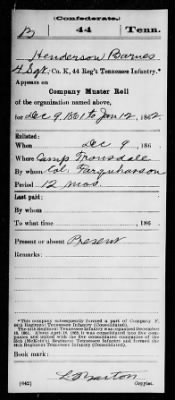 (Confederate.)
B 44 Tenn.
Henderson Barnes
4 Sgt, Co. K, 44 Reg't Tennessee Infantry.*
Appears on
Company Muster Roll
of the organization named above,
for Dec 9, 1861 to Jan 12, 1862.
Enlisted:
When Dec 9, 186 .
Where Camp Trousdale
By whom Col. Farquharson
Period 12 mos.
Last paid:
By whom
To what time , 186 .
Present or absent Present
Remarks:
*This company subsequently formed a part of Company
44th Regiment Tennessee Infantry (Consolidated).
Book mark:
(642) Copyist.